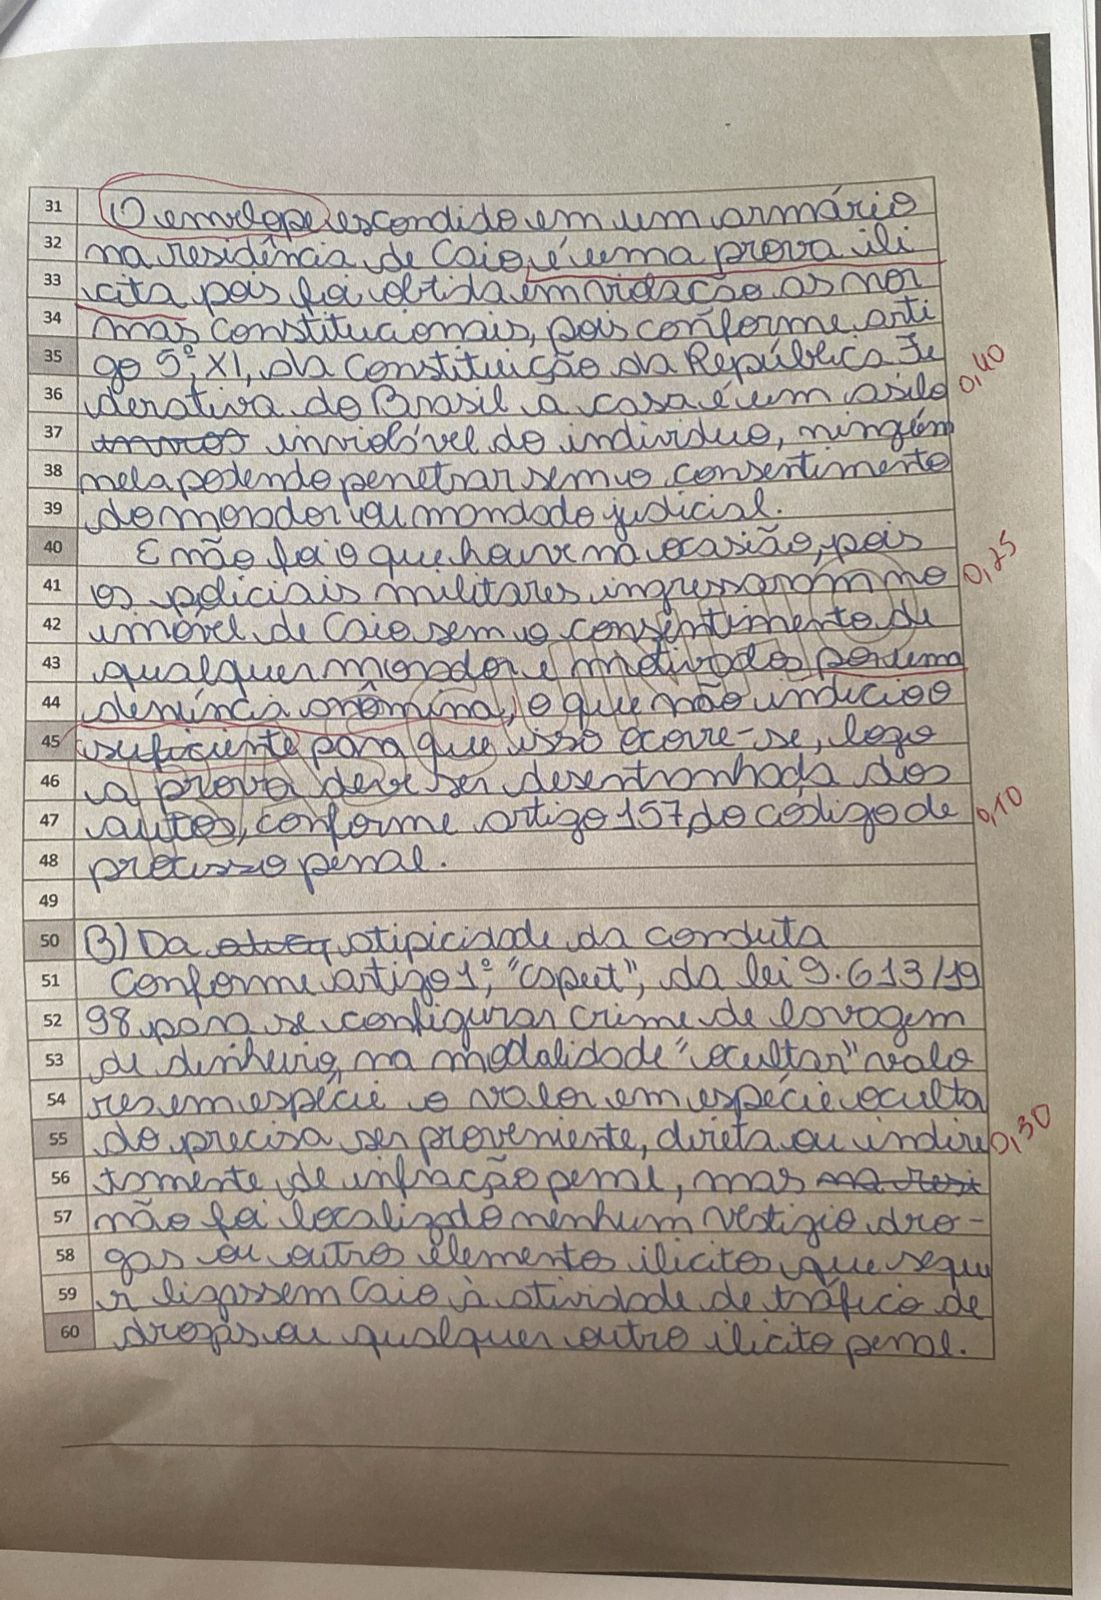 31 O envelope escondido em um armário
32 na residência de Caio, é uma prova ili
33 cita pois foi obtida em violação as nor
34 mas constitucionais, pois conforme arti
35 go 5º, XI, da Constituição da República Fe
36 derativa do Brasil a casa é um asilo 0,40
37 inviolável do individuo, ninguém
38 nela podendo penetrar sem o consentimento
39 do morador ou mandado judicial.
40 E não foi o que houve na ocasião, pois
41 os policiais militares ingressaram no 0,25
42 imóvel de Caio sem o consentimento de
43 qualquer morador e motivados por uma
44 denúncia anônima, o que não indicio
45 suficiente para que isso ocorre-se, logo
46 a prova deve ser desentranhada dos
47 autos, conforme artigo 157, do código de 0,10
48 processo penal.
49
50 B) Da atipicidade da conduta
51 Conforme artigo 1º, "caput", da lei 9.613/19
52 98 para se configurar crime de lavagem
53 de dinheiro, na modalidade "ocultar" valo
54 res em espécie o valor em espécie oculta
55 do precisa ser proveniente, direta ou indire 0,30
56 tamente de infração penal, mas
57 não foi localizado nenhum vestigio dro-
58 gas ou outros elementos ilicitos que sequ
59 r ligassem Caio à atividade de tráfico de
60 drogas ou qualquer outro ilicito penal.